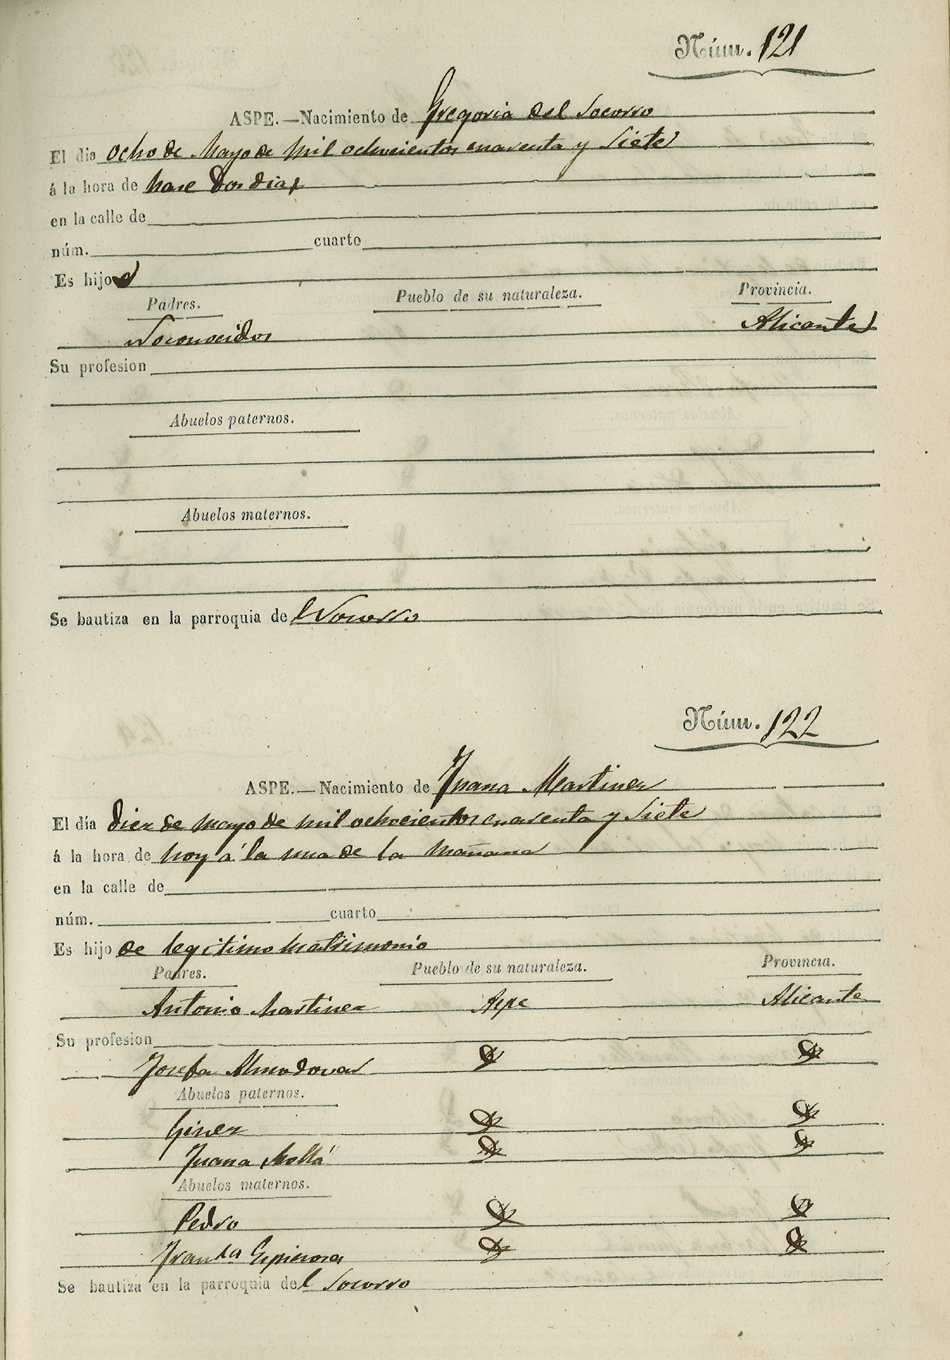 Núm. 121
ASPE.—Nacimiento de Gregoria del Socorro
El dia ocho de Mayo de mil ochocientos cuarenta y siete
á la hora de hase dos dias
en la calle de
núm. cuarto
Es hijo
Padres. Pueblo de su naturaleza. Provincia.
Alicante
Su profesion
Abuelos paternos.
Abuelos maternos.
Se bautiza en la parroquia del Socorro
Núm. 122
ASPE.—Nacimiento de Juana Martinez
El día diez de mayo de mil ochocientos cuarenta y siete
á la hora de hoy á la una de la mañana
en la calle de
núm. cuarto
Es hijo de legitimo matrimonio
Padres. Pueblo de su naturaleza. Provincia.
Antonio Martinez Aspe Alicante
Su profesion
Josefa Almodovar
Abuelos paternos.
Ginez
Juana Mollá
Abuelos maternos.
Pedro
Franca Espinosa
Se bautiza en la parroquia del Socorro